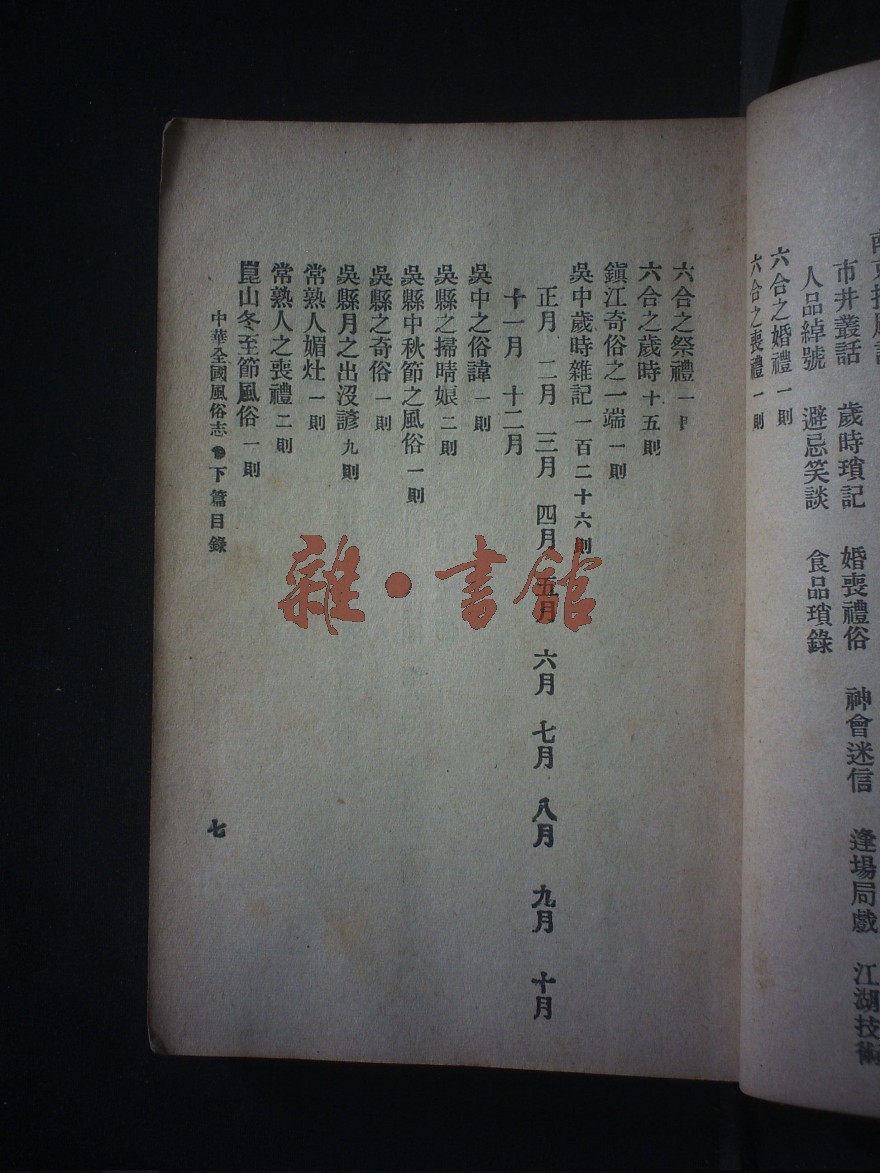 市井叢話　歲時瑣記　婚喪禮俗　神會迷信　逢場局戲　江湖技術
人品綽號　避忌笑談　食品瑣錄
六合之婚禮 一則
六合之喪禮 一則
六合之祭禮 一
六合之歲時 十五則
鎭江奇俗之一端 一則
吳中歲時雜記 一百二十六則
正月　二月　三月　四月　五月　六月　七月　八月　九月　十月
十一月　十二月
吳中之俗諱 一則
吳縣之掃晴娘 二則
吳縣中秋節之風俗 一則
吳縣之奇俗 一則
吳縣月之出沒諺 九則
常熟人媚灶 一則
常熟人之喪禮 二則
崑山冬至節風俗 一則
中華全國風俗志●下篇目錄
七
雜·書館